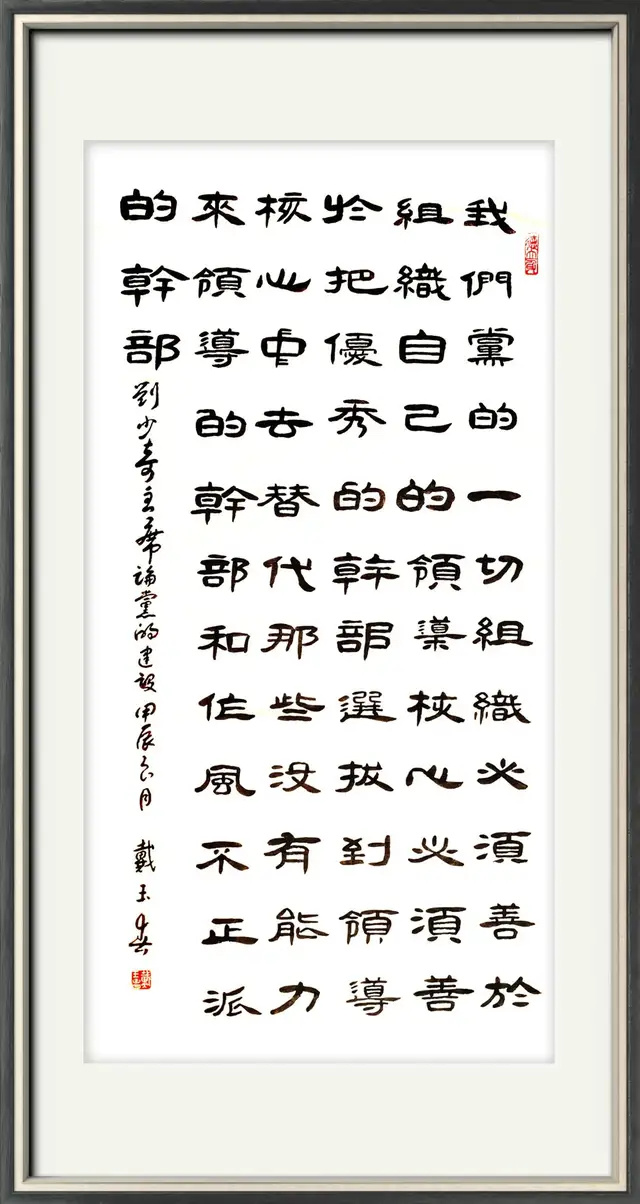 我們黨的一切組織必須善於
組織自己的領導核心必須善
於把優秀的幹部選拔到領導
核心中去替代那些没有能力
來領導的幹部和作風不正派
的幹部
劉少奇主席論黨的建設 甲辰月 戴玉